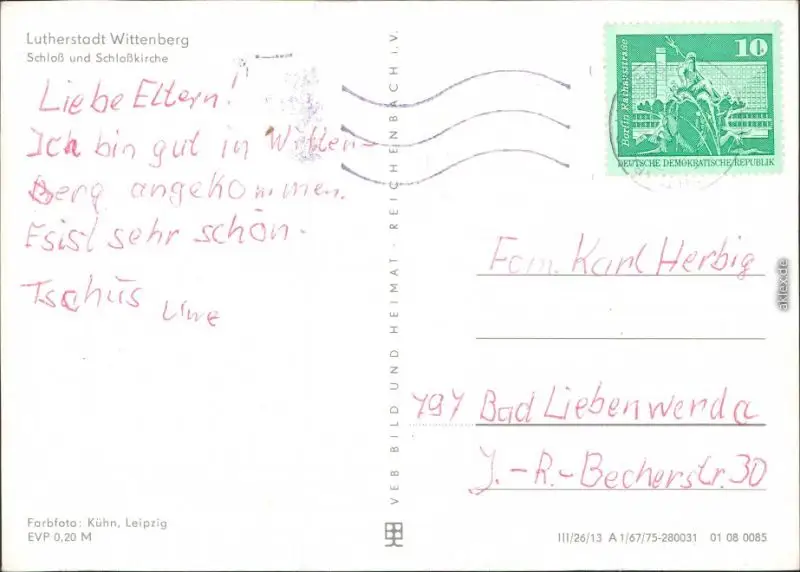 Lutherstadt Wittenberg
Schloß und Schloßkirche
Liebe Eltern!
Ich bin gut in Witten-
Berg angekommen.
Es ist sehr schön.
Tschüs Uwe
Farbfoto: Kühn, Leipzig
EVP 0,20 M
VEB BILD UND HEIMAT · REICHENBACH i. V.
10
Berlin Rathausstraße
DEUTSCHE DEMOKRATISCHE REPUBLIK
Fam. Karl Herbig
797 Bad Liebenwerda
J.-R.-Becherstr. 30
III/26/13 A 1/67/75-280031 01 08 0085
aklex.de